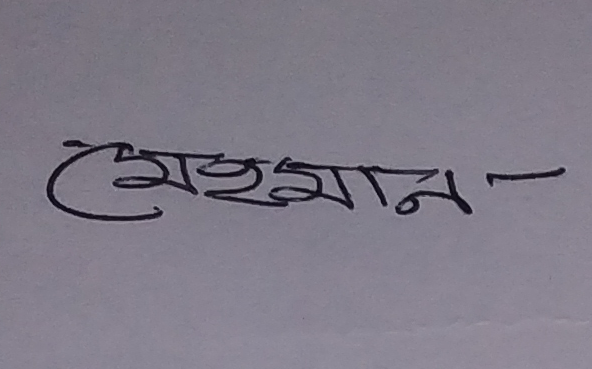 মেহমান -